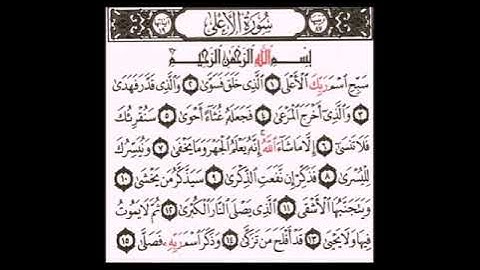 سورة الأعلى
بسم الله الرحمن الرحيم
سَبِّحِ اسْمَ رَبِّكَ الْأَعْلَى ١ الَّذِي خَلَقَ فَسَوَّىٰ ٢ وَالَّذِي قَدَّرَ فَهَدَىٰ
٣ وَالَّذِي أَخْرَجَ الْمَرْعَىٰ ٤ فَجَعَلَهُ غُثَاءً أَحْوَىٰ ٥ سَنُقْرِئُكَ
فَلَا تَنسَىٰ ٦ إِلَّا مَا شَاءَ اللَّهُ إِنَّهُ يَعْلَمُ الْجَهْرَ وَمَا يَخْفَىٰ ٧ وَنُيَسِّرُكَ
لِلْيُسْرَىٰ ٨ فَذَكِّرْ إِن نَّفَعَتِ الذِّكْرَىٰ ٩ سَيَذَّكَّرُ مَن يَخْشَىٰ ١٠
وَيَتَجَنَّبُهَا الْأَشْقَى ١١ الَّذِي يَصْلَى النَّارَ الْكُبْرَىٰ ١٢ ثُمَّ لَا يَمُوتُ
فِيهَا وَلَا يَحْيَىٰ ١٣ قَدْ أَفْلَحَ مَن تَزَكَّىٰ ١٤ وَذَكَرَ اسْمَ رَبِّهِ فَصَلَّىٰ ١٥